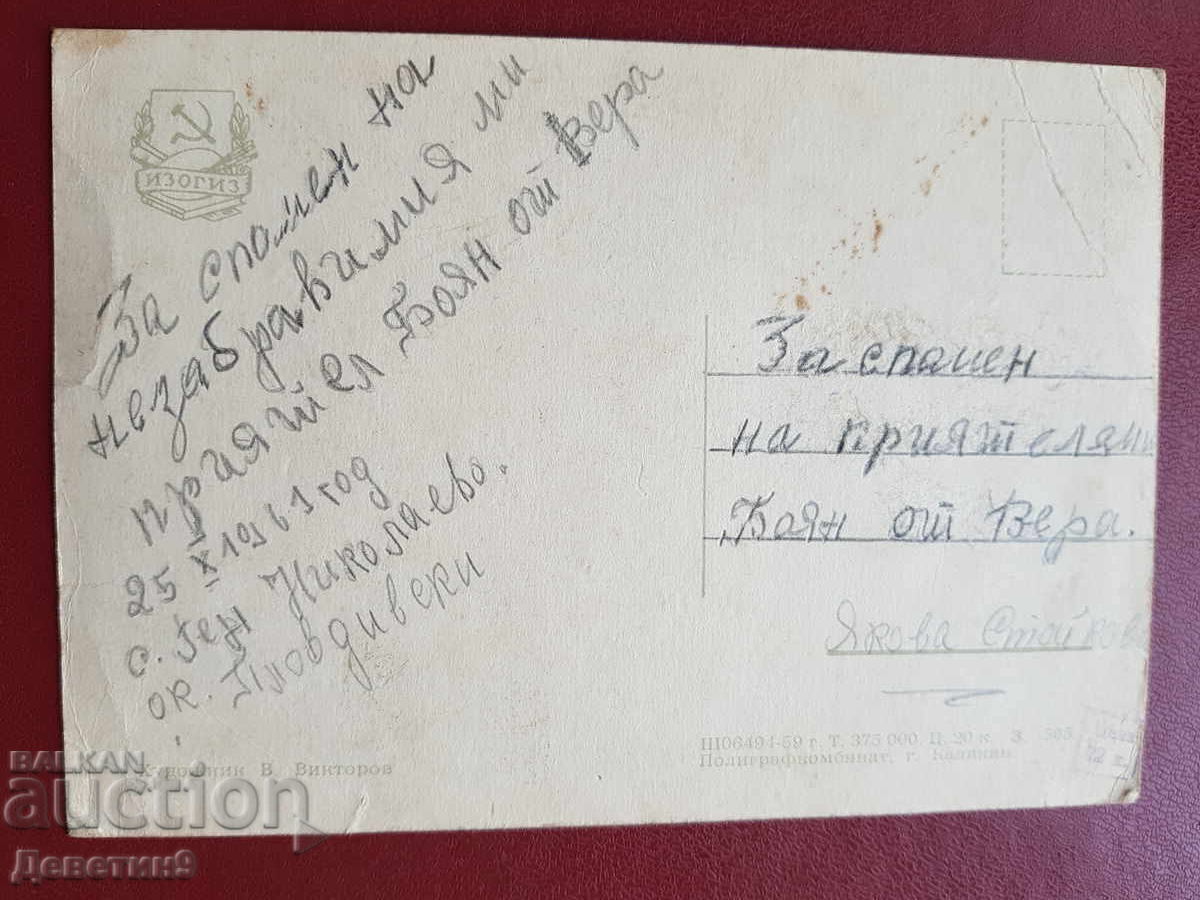 ИЗОГИЗ
За спомен на
незабравимия ми
приятел Боян от Вера
25 X 1961 год
с. Ген Николаево.
ок. Пловдивски
За спомен
на приятеля ми
Боян от Вера.
Якова Стойкова
Ш06494-59 г. Т. 375 000. Ц. 20 к. З. 505
Полиграфкомбинат, г. Калинин.
Художник В. Викторов
BALKAN
auction
Деветин9